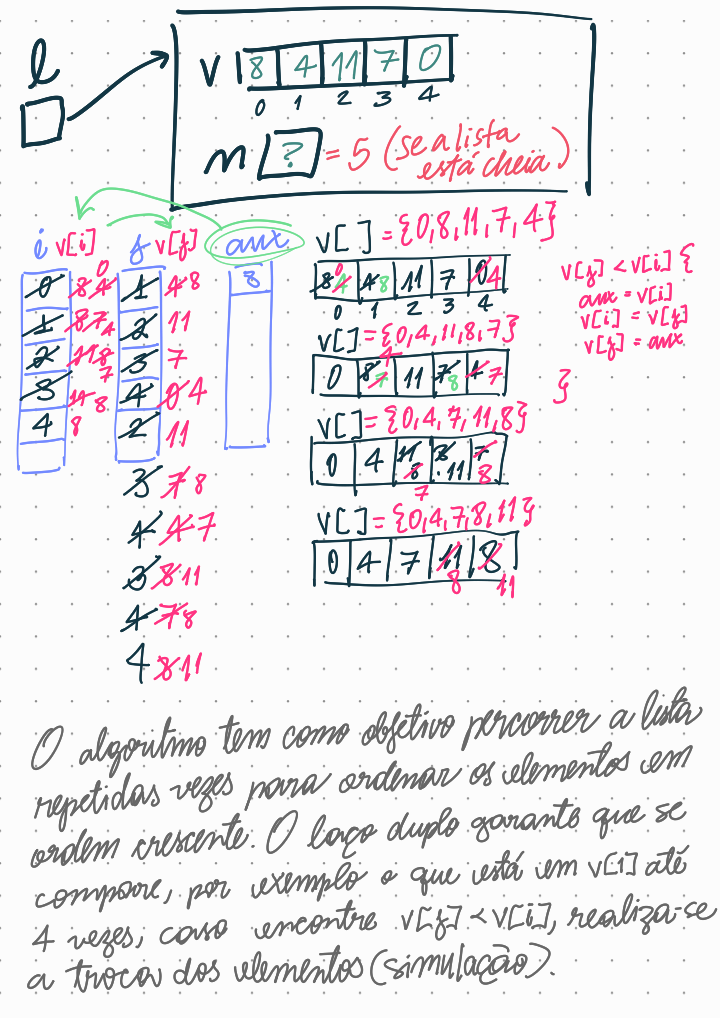 l
v 8 4 11 7 0
0 1 2 3 4
n ? = 5 (se a lista
está cheia)
i v[i] j v[j] aux
0 8 4 0 1 4 8 8
1 8 7 4 2 11
2 11 8 7 3 7
3 11 8 4 0 4
4 8 2 11
3 7 8
4 4 7
3 8 11
4 7 8
4 8 11
v[ ] = {0,8,11,7,4}
8 0 4 4 8 11 7 0 4
0 1 2 3 4
v[ ] = {0,4,11,8,7}
0 8 7 4 11 7 8 4 7
v[ ] = {0,4,7,11,8}
0 4 11 8 7 8 11 7 8
v[ ] = {0,4,7,8,11}
0 4 7 11 8 8 11
v[j] < v[i] {
aux = v[i]
v[i] = v[j]
v[j] = aux
}
O algoritmo tem como objetivo percorrer a lista
repetidas vezes para ordenar os elementos em
ordem crescente. O laço duplo garante que se
compare, por exemplo o que está em v[1] até
4 vezes, caso encontre v[j] < v[i], realiza-se
a troca dos elementos (simulação).